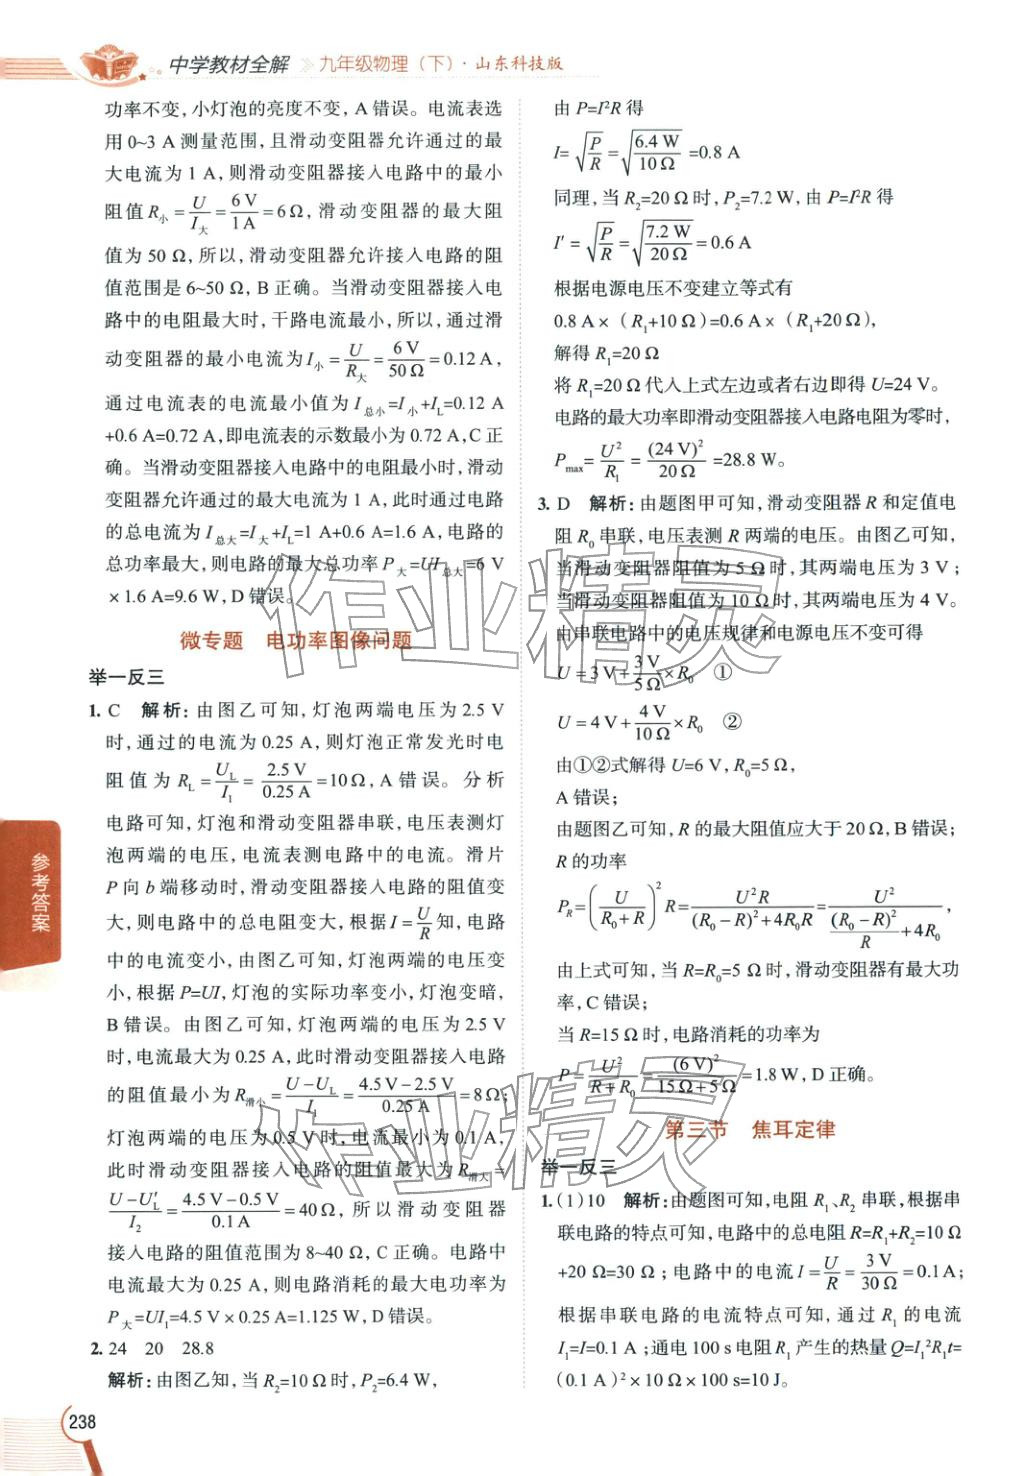 中学教材全解 》九年级物理（下）·山东科技版
功率不变，小灯泡的亮度不变，A 错误。电流表选
用 0~3 A 测量范围，且滑动变阻器允许通过的最
大电流为 1 A，则滑动变阻器接入电路中的最小
阻值 R小 = U/I大 = 6 V/1 A = 6 Ω，滑动变阻器的最大阻
值为 50 Ω，所以，滑动变阻器允许接入电路的阻
值范围是 6~50 Ω，B 正确。当滑动变阻器接入电
路中的电阻最大时，干路电流最小，所以，通过滑
动变阻器的最小电流为 I小 = U/R大 = 6 V/50 Ω = 0.12 A，
通过电流表的电流最小值为 I总小=I小+I_L=0.12 A
+0.6 A=0.72 A，即电流表的示数最小为 0.72 A，C 正
确。当滑动变阻器接入电路中的电阻最小时，滑动
变阻器允许通过的最大电流为 1 A，此时通过电路
的总电流为 I总大=I大+I_L=1 A+0.6 A=1.6 A，电路的
总功率最大，则电路的最大总功率 P大=UI总大=6 V
×1.6 A=9.6 W，D 错误。
微专题 电功率图像问题
举一反三
1. C 解析：由图乙可知，灯泡两端电压为 2.5 V
时，通过的电流为 0.25 A，则灯泡正常发光时电
阻值为 R_L = U_L/I₁ = 2.5 V/0.25 A = 10 Ω，A 错误。分析
电路可知，灯泡和滑动变阻器串联，电压表测灯
泡两端的电压，电流表测电路中的电流。滑片
P 向 b 端移动时，滑动变阻器接入电路的阻值变
大，则电路中的总电阻变大，根据 I = U/R 知，电路
中的电流变小，由图乙可知，灯泡两端的电压变
小，根据 P=UI，灯泡的实际功率变小，灯泡变暗，
B 错误。由图乙可知，灯泡两端的电压为 2.5 V
时，电流最大为 0.25 A，此时滑动变阻器接入电路
的阻值最小为 R滑小 = (U-U_L)/I₁ = (4.5 V-2.5 V)/0.25 A = 8 Ω；
灯泡两端的电压为 0.5 V 时，电流最小为 0.1 A，
此时滑动变阻器接入电路的阻值最大为 R滑大 =
(U-U_L′)/I₂ = (4.5 V-0.5 V)/0.1 A = 40 Ω，所以滑动变阻器
接入电路的阻值范围为 8~40 Ω，C 正确。电路中
电流最大为 0.25 A，则电路消耗的最大电功率为
P大=UI₁=4.5 V×0.25 A=1.125 W，D 错误。
2. 24 20 28.8
解析：由图乙知，当 R₂=10 Ω 时，P₂=6.4 W，
由 P=I²R 得
I = √(P/R) = √(6.4 W/10 Ω) = 0.8 A
同理，当 R₂=20 Ω 时，P₂=7.2 W，由 P=I²R 得
I′ = √(P/R) = √(7.2 W/20 Ω) = 0.6 A
根据电源电压不变建立等式有
0.8 A×（R₁+10 Ω）=0.6 A×（R₁+20 Ω），
解得 R₁=20 Ω
将 R₁=20 Ω 代入上式左边或者右边即得 U=24 V。
电路的最大功率即滑动变阻器接入电路电阻为零时，
P_max = U²/R₁ = (24 V)²/20 Ω = 28.8 W。
3. D 解析：由题图甲可知，滑动变阻器 R 和定值电
阻 R₀ 串联，电压表测 R 两端的电压。由图乙可知，
当滑动变阻器阻值为 5 Ω 时，其两端电压为 3 V；
当滑动变阻器阻值为 10 Ω 时，其两端电压为 4 V。
由串联电路中的电压规律和电源电压不变可得
U = 3 V + 3 V/5 Ω × R₀ ①
U = 4 V + 4 V/10 Ω × R₀ ②
由①②式解得 U=6 V，R₀=5 Ω，
A 错误；
由题图乙可知，R 的最大阻值应大于 20 Ω，B 错误；
R 的功率
P_R = (U/(R₀+R))² R = U²R/((R₀-R)²+4R₀R) = U²/((R₀-R)²/R+4R₀)，
由上式可知，当 R=R₀=5 Ω 时，滑动变阻器有最大功
率，C 错误；
当 R=15 Ω 时，电路消耗的功率为
P = U²/(R+R₀) = (6 V)²/(15 Ω+5 Ω) = 1.8 W，D 正确。
第三节 焦耳定律
举一反三
1. (1) 10 解析：由题图可知，电阻 R₁、R₂ 串联，根据串
联电路的特点可知，电路中的总电阻 R=R₁+R₂=10 Ω
+20 Ω=30 Ω；电路中的电流 I = U/R = 3 V/30 Ω = 0.1 A；
根据串联电路的电流特点可知，通过 R₁ 的电流
I₁=I=0.1 A；通电 100 s 电阻 R₁ 产生的热量 Q=I₁²R₁t=
(0.1 A)²×10 Ω×100 s=10 J。
参考答案
238
作业精灵
作业精灵